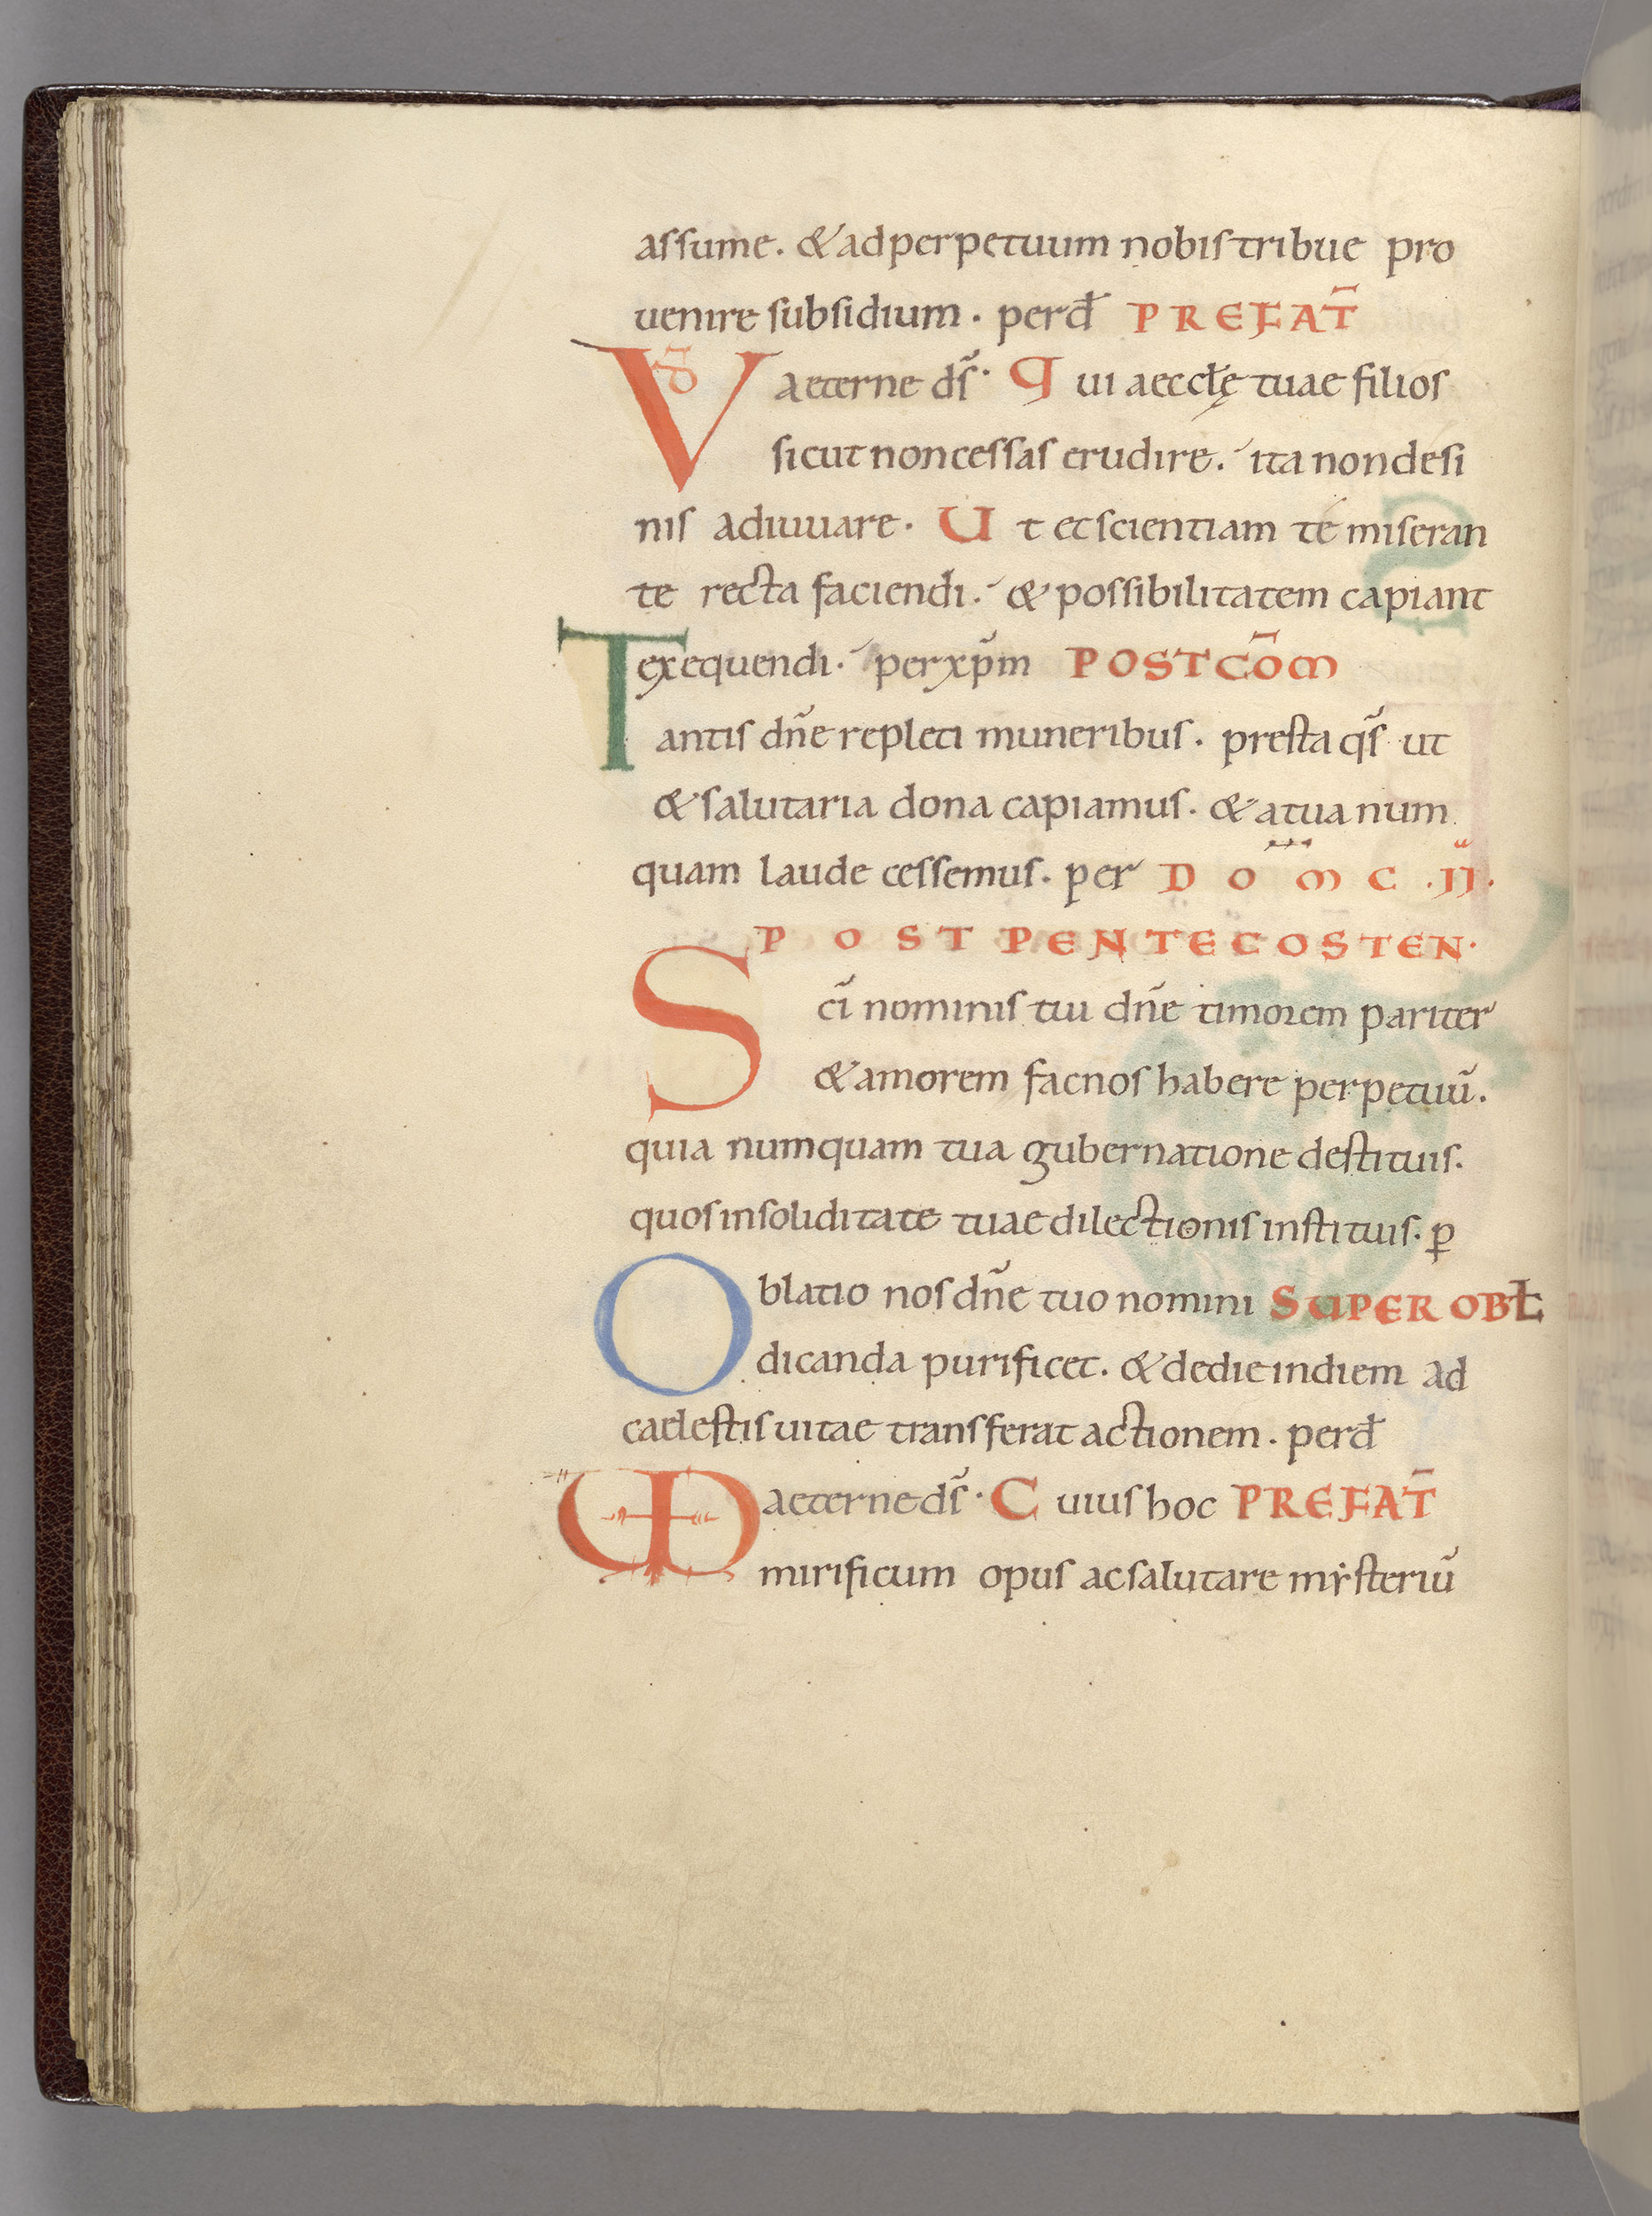 assume. & ad perpetuum nobis tribue pro
uenire subsidium. per đ PREFAT̄
V d̄ aeterne dſ̃. Q ui aeccłę tuae filios
sicut non cessas erudire. ita non desi
nis adiuuare. U t et scientiam té miseran
te recta faciendi. & possibilitatem capiant
exequendi. per xp̃m POST COM̄
T antis dñe repleti muneribus. presta qs̃ ut
& salutaria dona capiamus. & a tua num
quam laude cessemus. per DOM̄ C .II.
POST PENTECOSTEN.
S cĩ nominis tui dñe timorem pariter
& amorem fac nos habere perpetuũ.
quia numquam tua gubernatione destituis.
quos in soliditate tuae dilectionis instituis. ꝑ
O blatio nos dñe tuo nomini SUPER OBŁ
dicanda purificet. & de die in diem ad
caelestis uitae transferat actionem. per đ
UD aeterne dſ̃. C uius hoc PREFAT̄
mirificum opus ac salutare mẏsteriũ